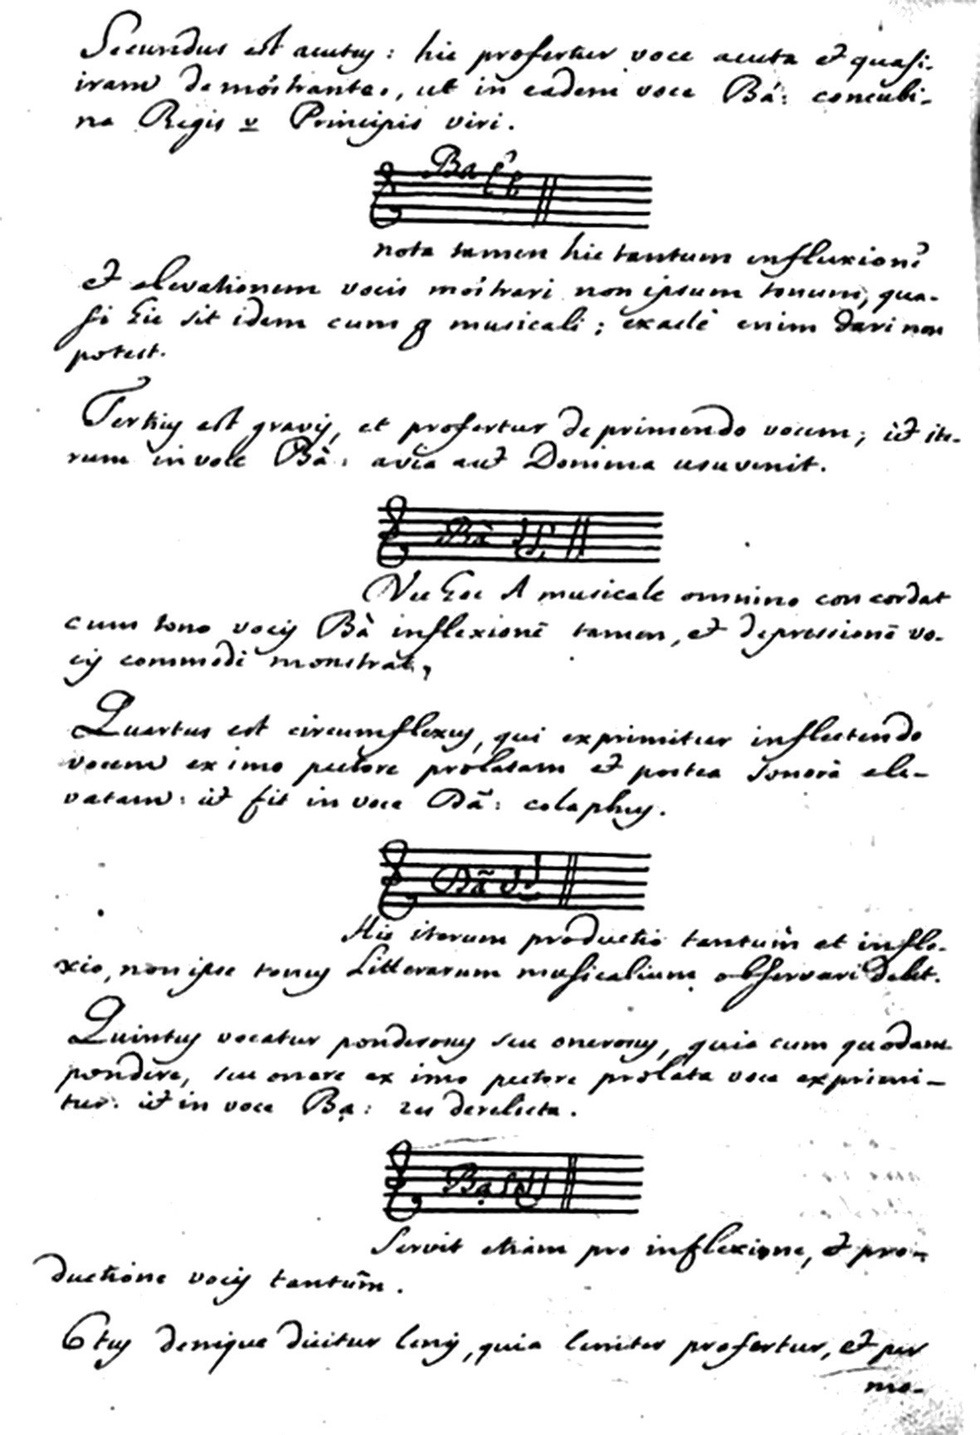 Secundus est acutus: hic profertur voce acuta et quasi
iram demõstrante, ut in eadem voce Bá: concubi-
na Regis v Principis viri.
Ba
nota tamen hic tantum inflexionẽ
et elevationem vocis mõstrari non ipsum tonum, qua-
si hic sit idem cum g musicali; exactè enim dari non
potest.
Tertius est gravis, et profertur deprimendo vocem; ut ite-
rum in voce Bà: avia aut Domina usu venit.
Bà
Nec hoc A musicale omnino concordat
cum tono vocis Bà inflexionẽ tamen, et depressionẽ vo-
cis commodè monstrat,
Quartus est circumflexus, qui exprimitur inflectendo
vocem ex imo pectore prolatam et postea sonorà ele-
vatam: ut fit in voce Bã: colaphus.
Bã
Hic iterum productio tantum et infle-
xio, non ipse tonus Litterarum musicalium observari debet.
Quintus vocatur ponderosus seu onerosus, quia cum quodam
pondere, seu onere ex imo pectore prolata voce exprimi-
tur. ut in voce Bạ: res derelicta.
Bạ
Servit etiam pro inflexione, et pro-
ductione vocis tantum.
6tus denique dicitur lenis, quia leniter profertur, et per
mo-